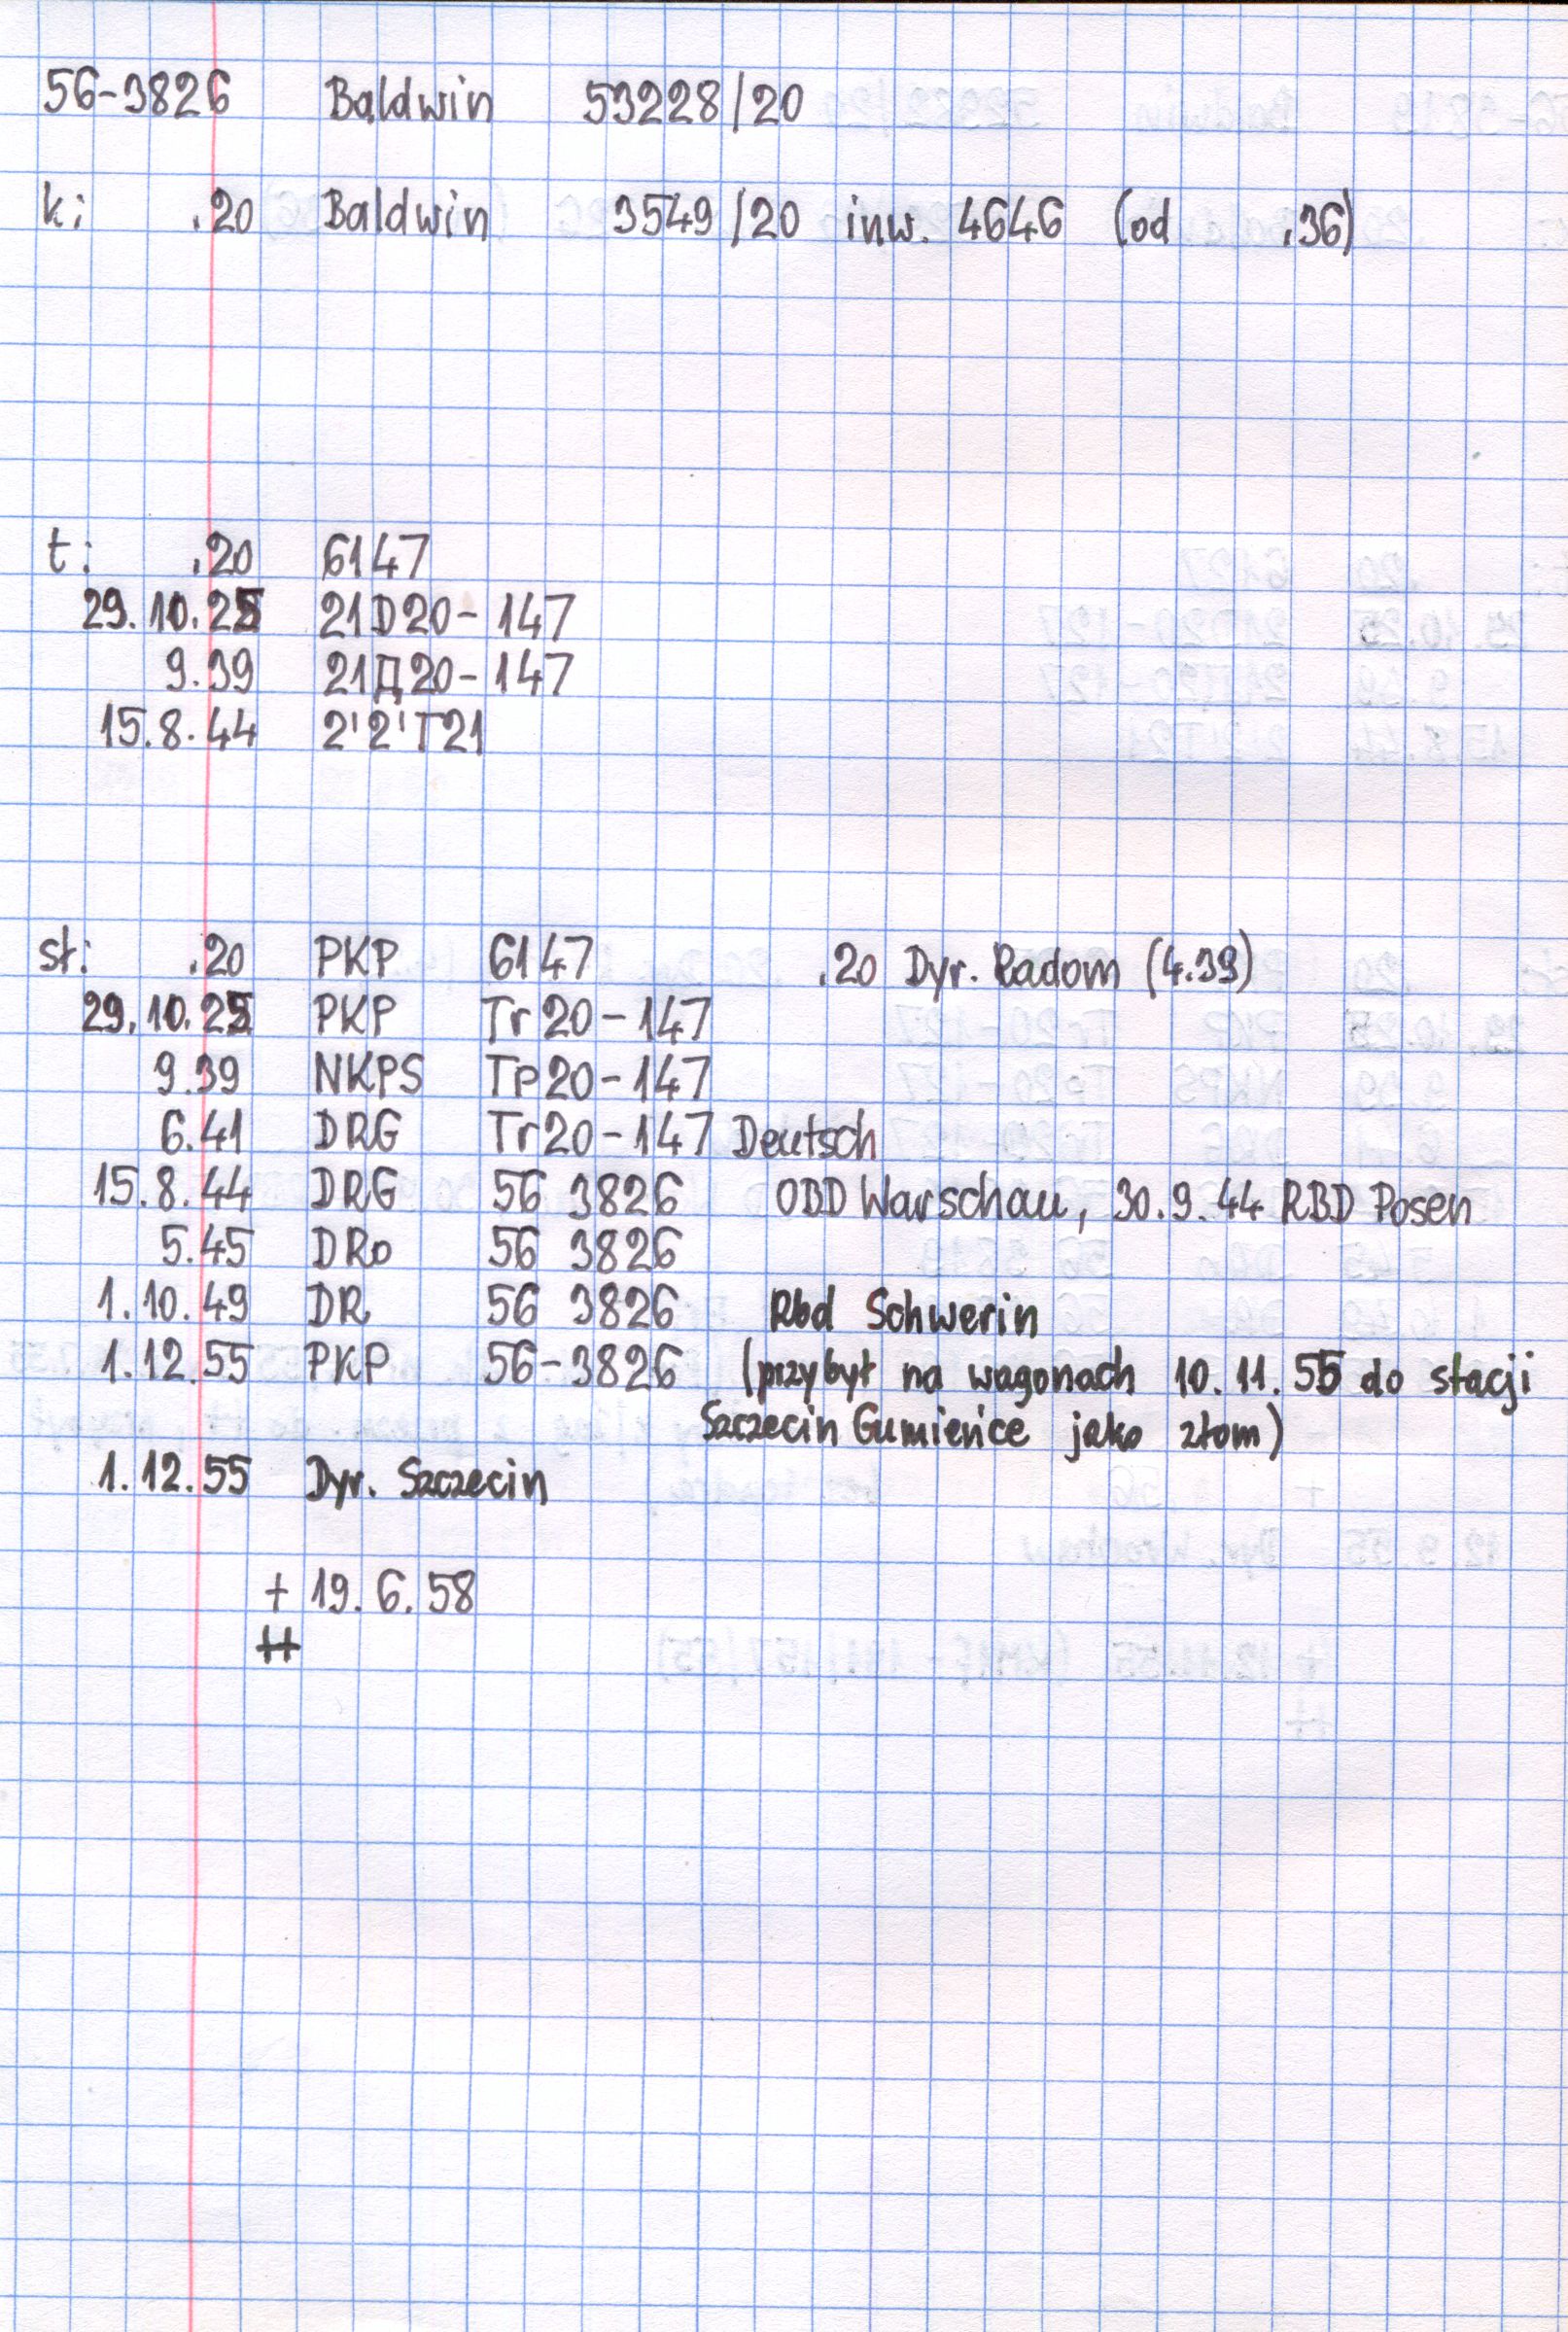 56-3826 Baldwin 53228/20
k: .20 Baldwin 3549/20 inw. 4646 (od .36)
t: .20 6147
29.10.25 21D20-147
9.39 21Д20-147
15.8.44 2'2'T21
st: .20 PKP 6147 .20 Dyr. Radom (4.39)
29.10.25 PKP Tr20-147
9.39 NKPS Tp20-147
6.41 DRG Tr20-147 Deutsch
15.8.44 DRG 56 3826 OBD Warschau, 30.9.44 RBD Posen
5.45 DRo 56 3826
1.10.49 DR 56 3826 Rbd Schwerin
1.12.55 PKP 56-3826 (przybył na wagonach 10.11.55 do stacji
Szczecin Gumieńce jako złom)
1.12.55 Dyr. Szczecin
+ 19.6.58
++